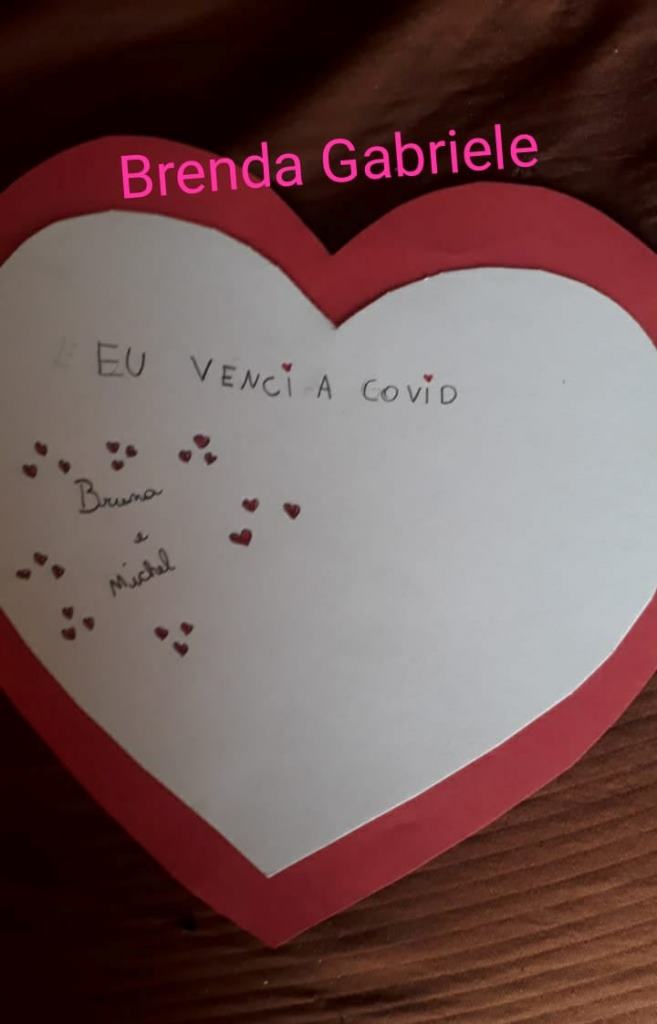 Brenda Gabriele
EU VENCI A COVID
Bruna
e
Michel